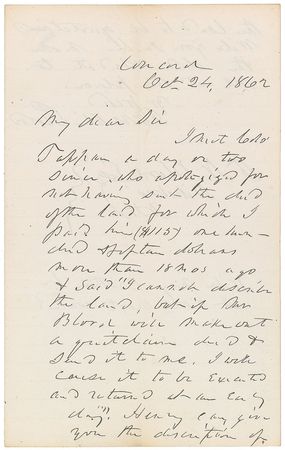 Concord
Oct 24, 1862
My dear Sir
I met Coln
Tappan a day or two
since, who apologized for
not having sent the deed
of the land for which I
paid him ($115) one hun-
dred & fifteen dollars
more than 18 mos ago
& said "I cannot describe
the land, but if Mr
Blood will make out
a quitclaim deed &
send it to me, I will
cause it to be executed
and returned at an early
day". Henry can give
you the description of